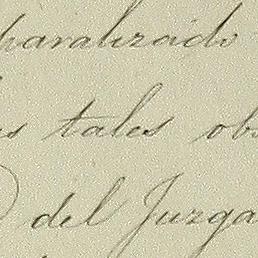 paralizado
tales obs
del Juzga